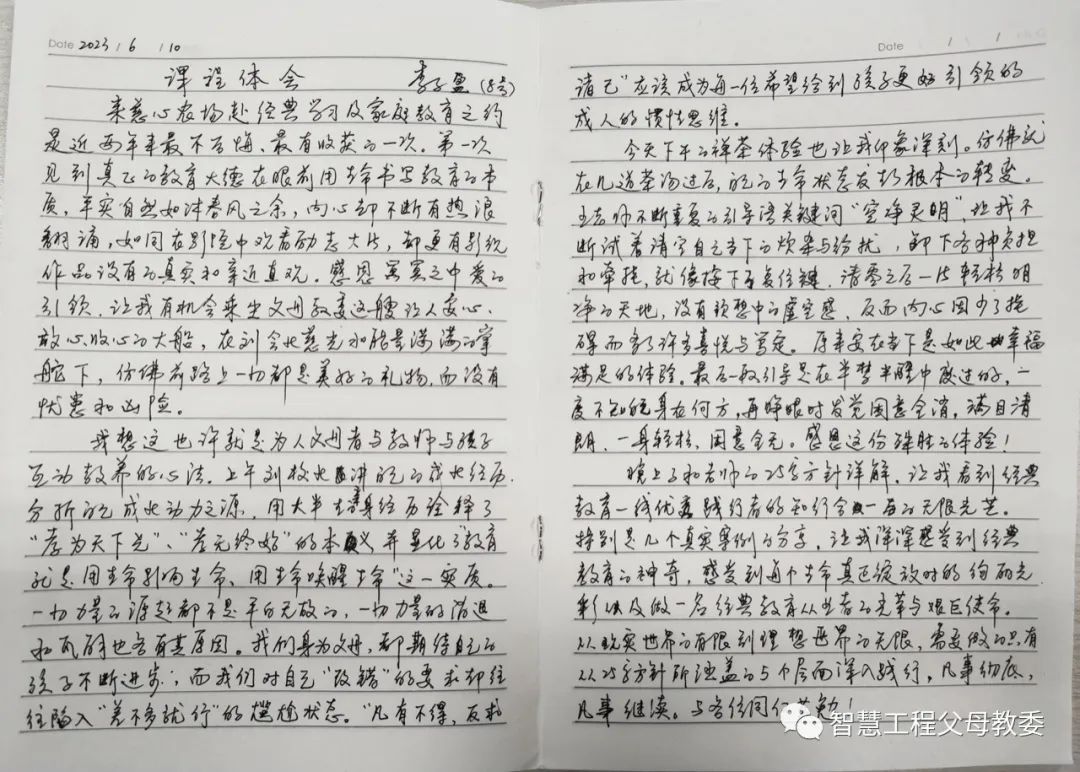 Date 2023 / 6 / 10
课程体会 李子盈 (8号)
来慈心农场赴经典学习及家庭教育之约
是近两年来最不后悔、最有收获的一次。第一次
见到真正的教育大德在眼前用生命书写教育的本
质，平实自然如沐春风之余，内心却不断有热浪
翻涌，如同在影院中观看励志大片，却更有影视
作品没有的真实和亲近直观。感恩冥冥之中爱的
引领，让我有机会乘坐父母教委这艘让人安心、
放心、收心的大船，在刘会长慈光和能量满满的掌
舵下，仿佛前路上一切都是美好的礼物，而没有
忧患和凶险。
我想这也许就是为人父母者与教师与孩子
互动教养的心法。上午刘校长讲她的成长经历，
分析她成长动力之源，用大半生亲身经历诠释了
“孝为天下先”、“孝无终始”的本义，并显化了“教育
就是用生命影响生命、用生命唤醒生命”这一实质。
一切力量的源起都不是平白无故的，一切力量的消退
和瓦解也各有其原因。我们身为父母，都期待自己的
孩子不断进步；而我们对自己“改错”的要求却往
往陷入“差不多就行”的尴尬状态。“凡有不得，反求
Date / /
诸己”应该成为每一位希望给到孩子更好引领的
成人的惯性思维。
今天下午的禅茶体验也让我印象深刻。仿佛就
在几道茶汤过后，我的生命状态发生根本的转变。
王老师不断重复的引导语关键词“空净灵明”，让我不
断试着清空自己当下的烦杂与纷扰，卸下各种负担
和牵挂，就像按下了复位键，清零之后一片轻松明
净的天地，没有预想中的虚空感，反而内心因少了挂
碍而多了许多喜悦与笃定。原来安在当下是如此幸福
满足的体验。最后一段引导是在半梦半醒中度过的，一
度不知自身在何方，再睁眼时发觉困意全消，满目清
朗，一身轻松，困意全无。感恩这份殊胜的体验！
晚上子和老师的25字方针详解，让我看到经典
教育一线优秀践行者的知行合一每的无限光芒。
特别是几个真实案例的分享，让我深深感受到经典
教育的神奇，感受到每个生命真正绽放时的绚丽光
彩以及做一名经典教育从业者的光荣与艰巨使命。
从现实世界的有限到理想世界的无限，需要做的只有
从25字方针所涵盖的5个层面深入践行，凡事彻底，
凡事继续。与各位同仁共勉！
智慧工程父母教委